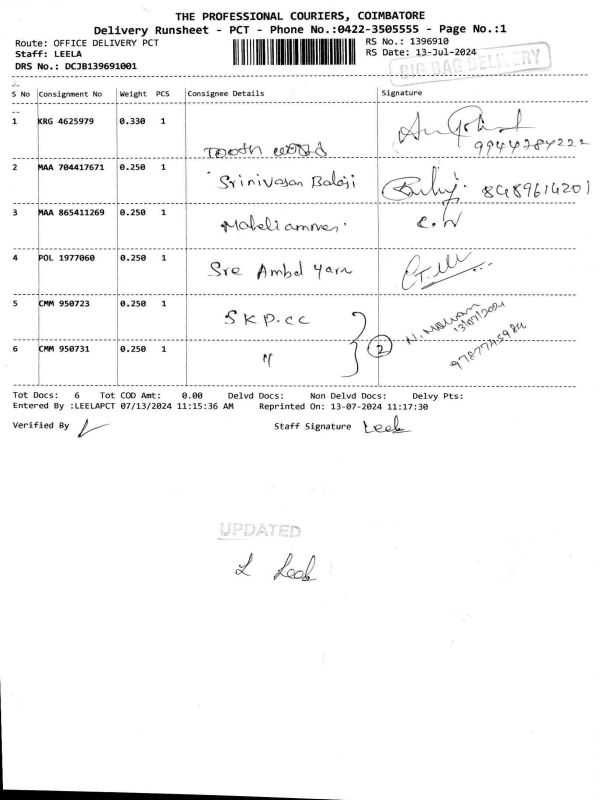 THE PROFESSIONAL COURIERS, COIMBATORE
Delivery Runsheet - PCT - Phone No.:0422-3505555 - Page No.:1
Route: OFFICE DELIVERY PCT RS No.: 1396910
Staff: LEELA RS Date: 13-Jul-2024
DRS No.: DCJB139691001
BIG BAG DELIVERY
S No Consignment No Weight PCS Consignee Details Signature
1 KRG 4625979 0.330 1
Tooth 9944784222
2 MAA 704417671 0.250 1 Srinivasan Balaji 8489614201
3 MAA 865411269 0.250 1
4 POL 1977060 0.250 1 Sre Ambal yarn
5 CMM 950723 0.250 1 SKP.CC N. Mohan
13/07/2024
6 CMM 950731 0.250 1 " 2 9787745984
Tot Docs: 6 Tot COD Amt: 0.00 Delvd Docs: Non Delvd Docs: Delvy Pts:
Entered By :LEELAPCT 07/13/2024 11:15:36 AM Reprinted On: 13-07-2024 11:17:30
Verified By Staff Signature Leela
UPDATED
L Leela